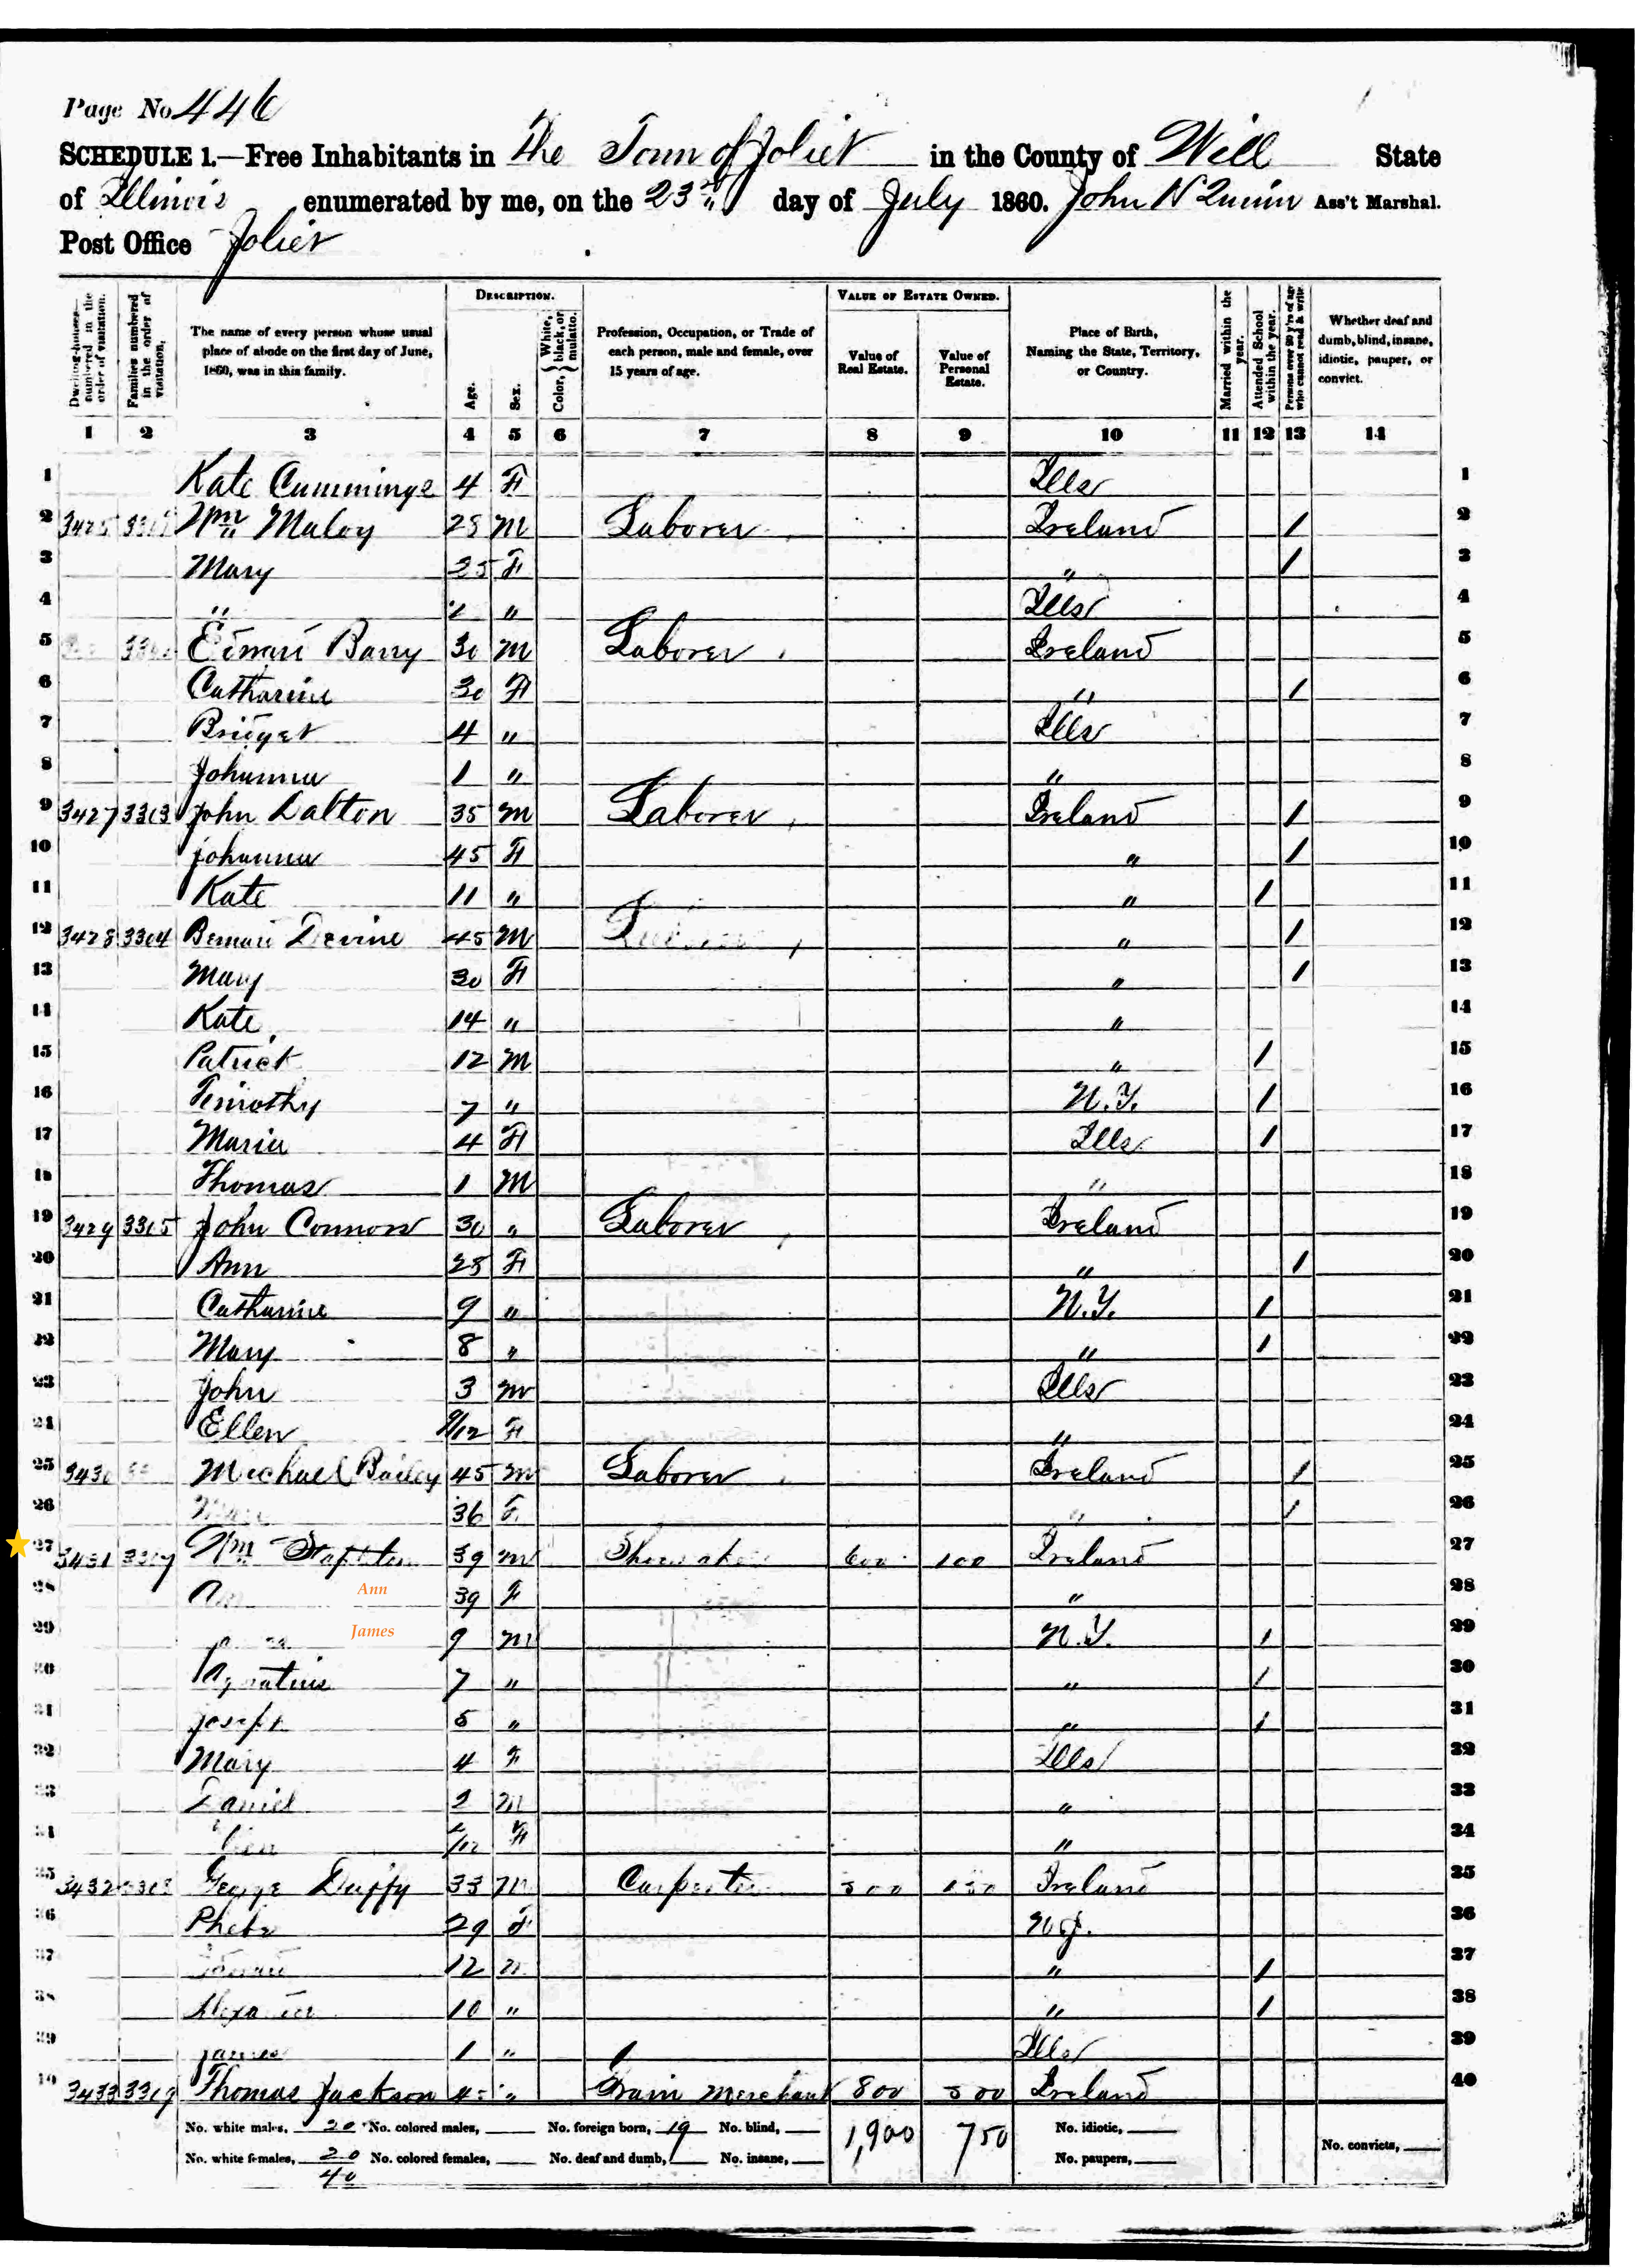 Page No 446
SCHEDULE 1.—Free Inhabitants in The Town of Joliet in the County of Will State
of Illinois enumerated by me, on the 23rd day of July 1860. John N Quinn Ass't Marshal.
Post Office Joliet
Dwelling-houses—numbered in the order of visitation.
Families numbered in the order of visitation.
The name of every person whose usual place of abode on the first day of June, 1860, was in this family.
DESCRIPTION.
Age.
Sex.
Color, { White, black, or mulatto.
Profession, Occupation, or Trade of each person, male and female, over 15 years of age.
VALUE OF ESTATE OWNED.
Value of Real Estate.
Value of Personal Estate.
Place of Birth, Naming the State, Territory, or Country.
Married within the year.
Attended School within the year.
Persons over 20 y'rs of age who cannot read & write.
Whether deaf and dumb, blind, insane, idiotic, pauper, or convict.
1 2 3 4 5 6 7 8 9 10 11 12 13 14
1 Kate Cummings 4 F Ills 1
2 3425 Wm Maloy 28 M Laborer Ireland / 2
3 Mary 25 F " / 3
4 " " Ills 4
5 Edward Barry 30 M Laborer Ireland 5
6 Catharine 30 F " / 6
7 Bridget 4 " Ills 7
8 Johanna 1 " " 8
9 3427 3363 John Dalton 35 M Laborer Ireland / 9
10 Johanna 45 F " / 10
11 Kate 11 " " / 11
12 3428 3364 Bernard Devine 45 M " / 12
13 Mary 30 F " / 13
14 Kate 14 " " 14
15 Patrick 12 M " / 15
16 Timothy 7 " N.Y. / 16
17 Maria 4 F Ills / 17
18 Thomas 1 M " 18
19 3429 3365 John Connors 30 " Laborer Ireland 19
20 Ann 28 F " / 20
21 Catharine 9 " N.Y. / 21
22 Mary 8 " " / 22
23 John 3 M Ills 23
24 Ellen 9/12 F " 24
25 3430 Michael Bailey 45 M Laborer Ireland / 25
26 36 F " / 26
27 3431 3367 Wm Stapleton 39 M Shoemaker 600 100 Ireland 27
28 Ann Ann 39 F " 28
29 James 9 M N.Y. / 29
30 Ignatius 7 " " / 30
31 Joseph 5 " " / 31
32 Mary 4 F Ills 32
33 Daniel 2 M " 33
34 /12 F " 34
35 3432 3368 George Duffy 33 M Carpenter 500 150 Ireland 35
36 Phebe 29 F N.J. 36
37 12 M " / 37
38 Alexander 10 " " / 38
39 James 1 " Ills 39
40 3433 3369 Thomas Jackson " Grain Merchant 800 500 Ireland 40
No. white males, 20 No. colored males, No. foreign born, 19 No. blind, 1,900 750 No. idiotic,
No. white females, 20 No. colored females, No. deaf and dumb, No. insane, No. paupers, No. convicts,
40